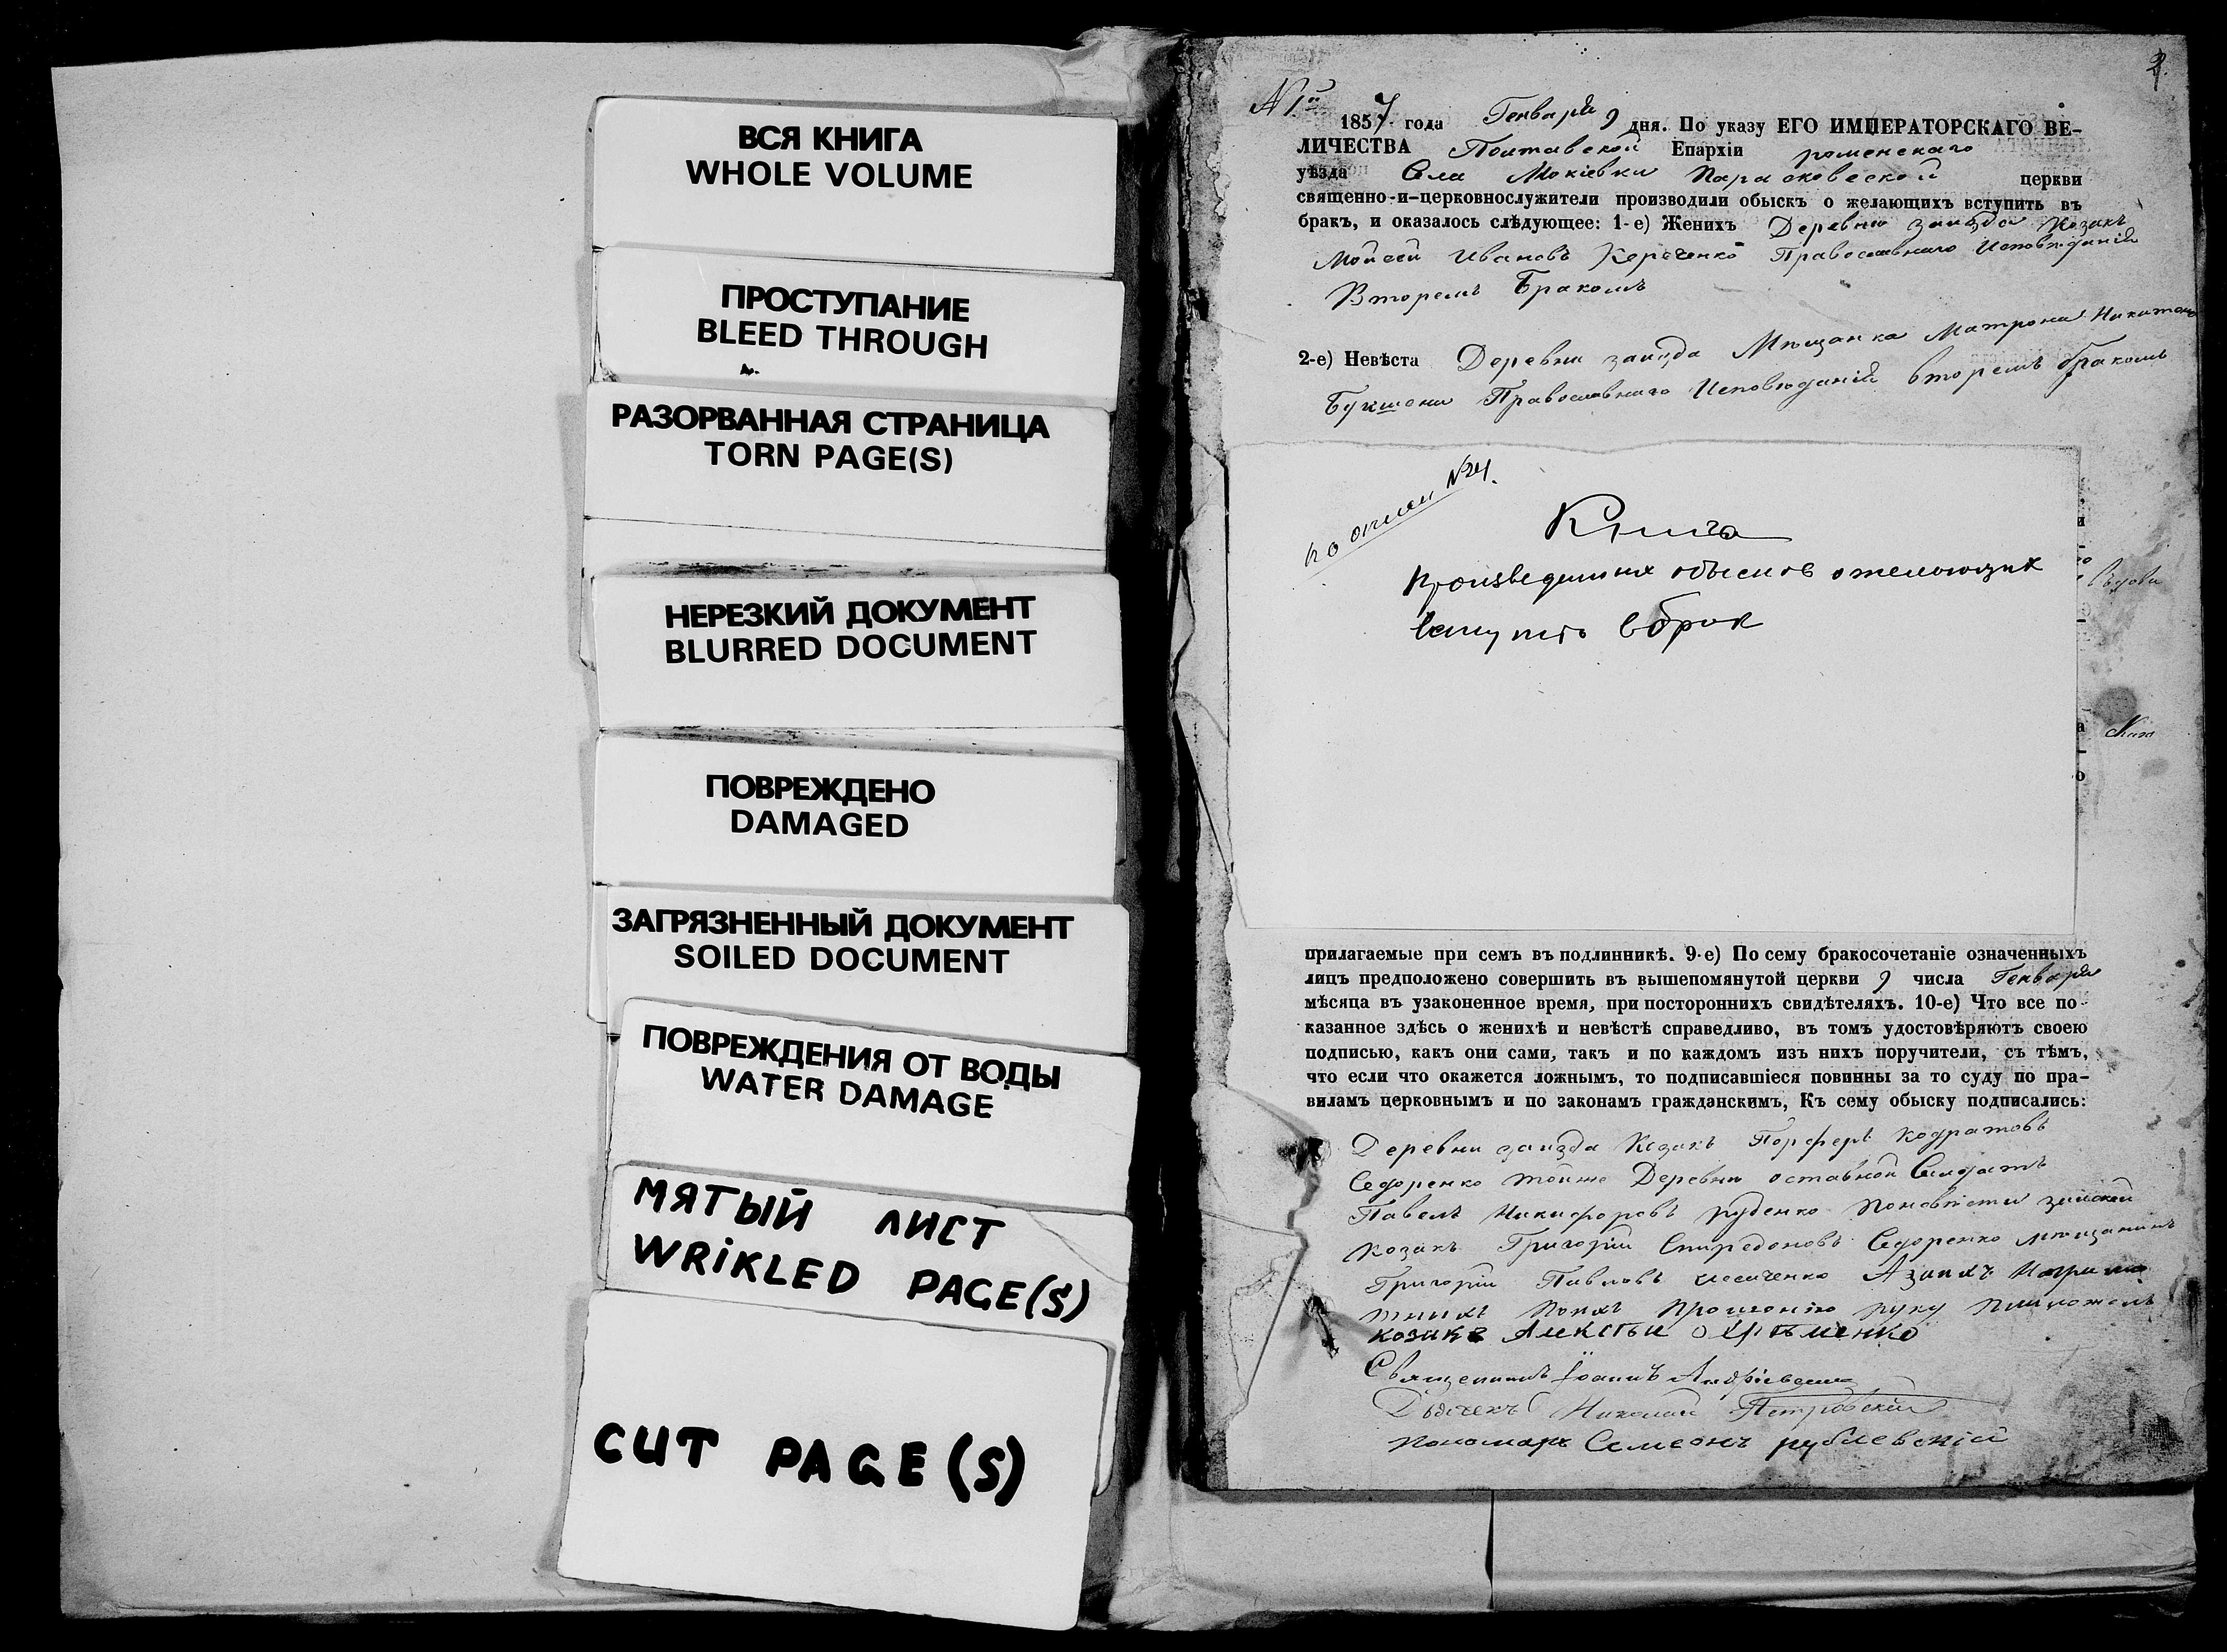 ВСЯ КНИГА
WHOLE VOLUME
ПРОСТУПАНИЕ
BLEED THROUGH
РАЗОРВАННАЯ СТРАНИЦА
TORN PAGE(S)
НЕРЕЗКИЙ ДОКУМЕНТ
BLURRED DOCUMENT
ПОВРЕЖДЕНО
DAMAGED
ЗАГРЯЗНЕННЫЙ ДОКУМЕНТ
SOILED DOCUMENT
ПОВРЕЖДЕНИЯ ОТ ВОДЫ
WATER DAMAGE
МЯТЫЙ ЛИСТ
WRIKLED PAGE(S)
CUT PAGE(S)
2.
№ 1й
1857. года Генваря 9 дня. По указу ЕГО ИМПЕРАТОРСКАГО ВЕ-
ЛИЧЕСТВА Полтавской Епархіи роменскаго
уѣзда Села Мокіевки Парасковеской церкви
священно-и-церковнослужители производили обыскъ о желающихъ вступить въ
бракъ, и оказалось слѣдующее: 1-е) Женихъ Деревни заизда Козакъ
Мойсей Ивановъ Православнаго Исповѣданія
Вторемъ Бракомъ
2-е) Невѣста Деревни заизда Мѣщанка Матрона
Православнаго Исповѣданія вторемъ бракомъ
по описи №24.
Книга
произведенних обысков о желающих
вступить в брак
прилагаемые при семъ въ подлинникѣ. 9-е) По сему бракосочетаніе означенныхъ
лицъ предположено совершить въ вышепомянутой церкви 9 числа Генваря
мѣсяца въ узаконенное время, при постороннихъ свидѣтеляхъ. 10-е) Что все по-
казанное здѣсь о женихѣ и невѣстѣ справедливо, въ томъ удостовѣряютъ своею
подписью, какъ они сами, такъ и по каждомъ изъ нихъ поручители, съ тѣмъ,
что если что окажется ложнымъ, то подписавшіеся повинны за то суду по пра-
виламъ церковнымъ и по законамъ гражданскимъ, Къ сему обыску подписались:
Деревни заизда Козакъ Порферъ Кодратовъ
Седоренко тойже Деревни оставной Салдатъ
Павелъ Никифоровъ руденко Поневѣсти
козакъ Григорій Спиредоновъ Седоренко мѣщанинъ
Григорій Павловъ
прошенію руку
козакъ Алексѣй
Священникъ Іоаннъ Андріевскій
Дьячекъ Николай Петровскій
Пономарь Семеонъ рублевскій